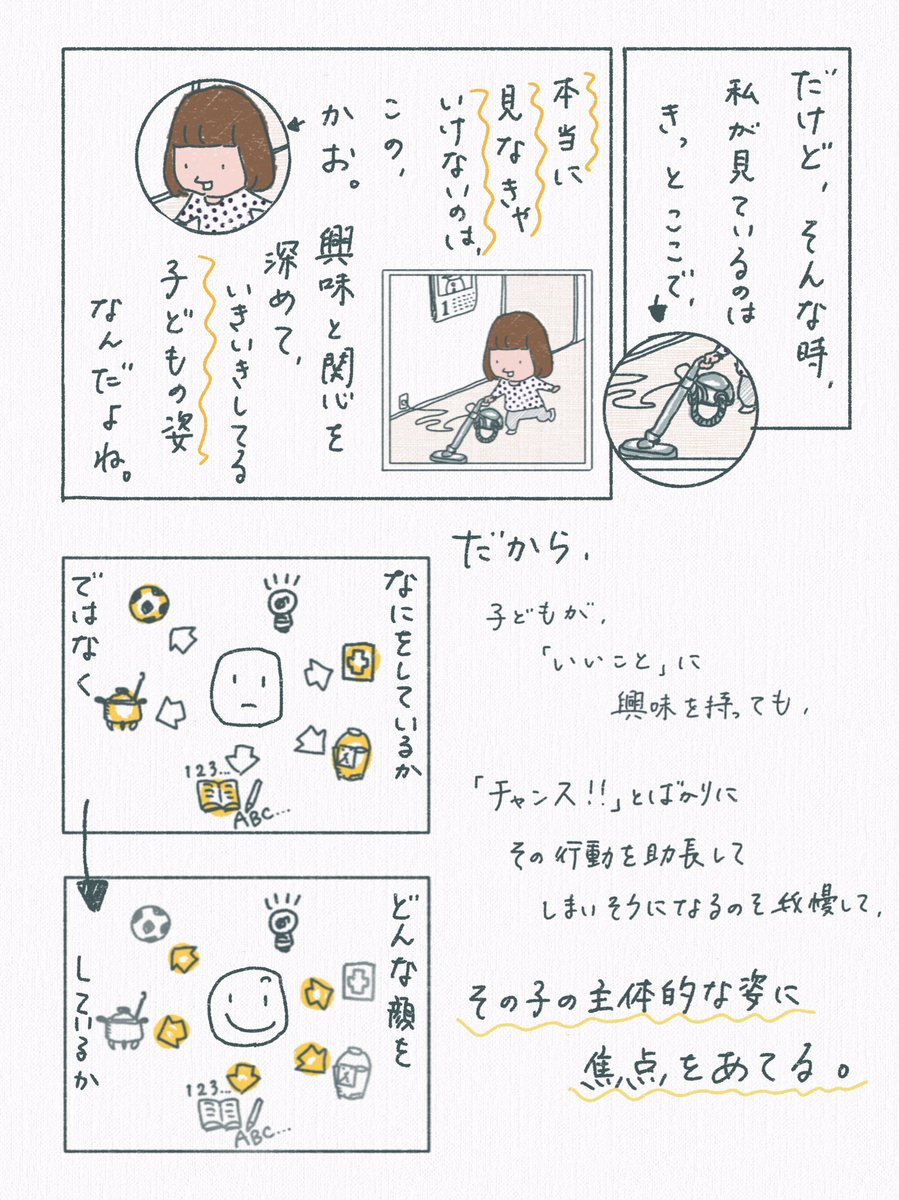 だけど、そんな時、
私が見ているのは
きっとここで、
本当に
見なきゃ
いけないのは、
この、
かお。
興味と関心を
深めて、
いきいきしてる
子どもの姿
なんだよね。
1
だから、
子どもが、
「いいこと」に
興味を持っても、
「チャンス!!」とばかりに
その行動を助長して
しまいそうになるのを我慢して、
その子の主体的な姿に
焦点をあてる。
なにをしているか
ではなく
123...
ABC...
どんな顔を
しているか
123...
ABC...